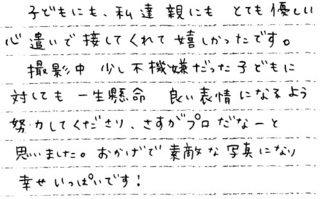 子どもにも、私達 親にも とても優しい
心遣いで接してくれて嬉しかったです。
撮影中 少し不機嫌だった子どもに
対しても 一生懸命 良い表情になるよう
努力してくださり、さすがプロだなーと
思いました。おかげで素敵な写真になり
幸せいっぱいです!